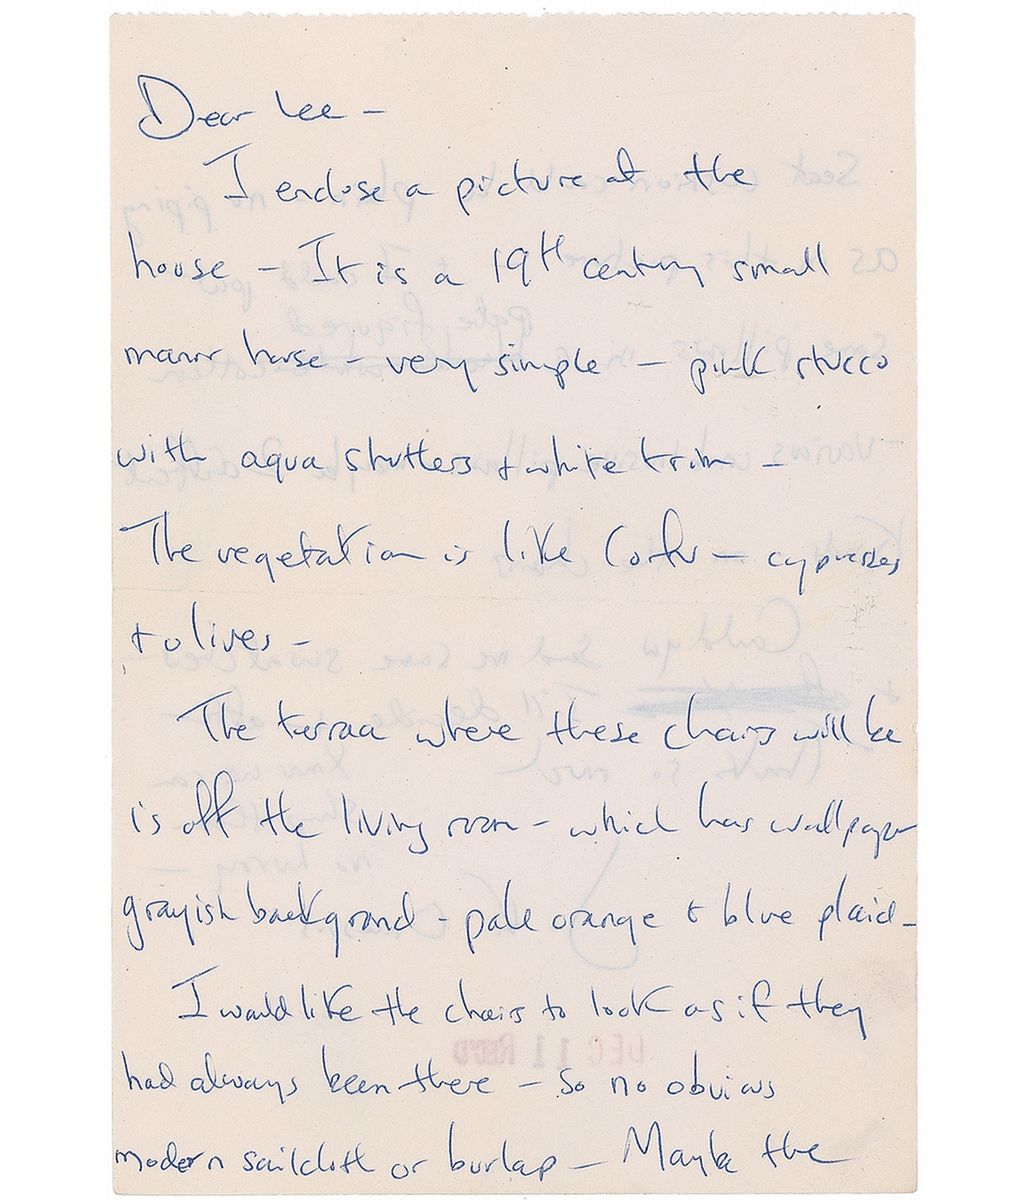 Dear Lee -
I enclose a picture of the
house - It is a 19th century small
manor house - very simple - pink stucco
with aqua shutters + white trim -
The vegetation is like Corfu - cypresses
+ olives -
The terrace where these chairs will be
is off the living room - which has wallpaper
grayish background - pale orange & blue plaid -
I would like the chairs to look as if they
had always been there - so no obvious
modern sailcloth or burlap - Maybe the
DEC 11 REC'D